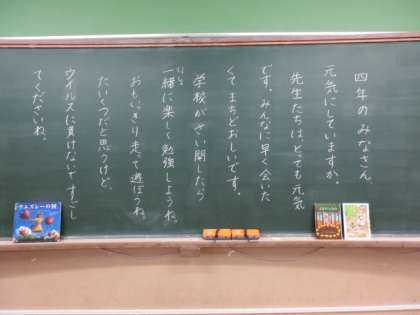 四年のみなさん、
元気にしていますか。
先生たちは、とっても元気
です。みんなに早く会いた
くて、まちどおしいです。
学校がさい開したら
一緒に楽しく勉強しようね。
おもいっきり走って遊ぼうね。
たいくつだと思うけど、
ウイルスに負けないですごし
てくださいね。